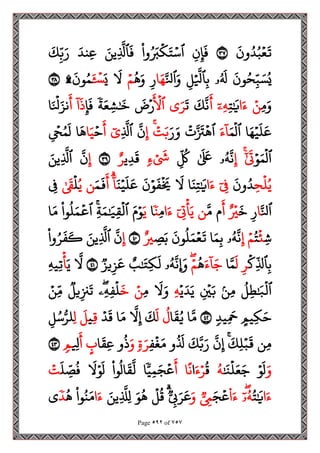 تَعْبُدُونَ ٣٧ فَإِنِ ٱسْتَكْبَرُوا۟ فَٱلَّذِينَ عِندَ رَبِّكَ
يُسَبِّحُونَ لَهُۥ بِٱلَّيْلِ وَٱلنَّهَارِ وَهُمْ لَا يَسْـَٔمُونَ ۩ ٣٨
وَمِنْ ءَايَـٰتِهِۦٓ أَنَّكَ تَرَى ٱلْأَرْضَ خَـٰشِعَةً فَإِذَآ أَنزَلْنَا
عَلَيْهَا ٱلْمَآءَ ٱهْتَزَّتْ وَرَبَتْ ۚ إِنَّ ٱلَّذِىٓ أَحْيَاهَا لَمُحْىِ
ٱلْمَوْتَىٰٓ ۚ إِنَّهُۥ عَلَىٰ كُلِّ شَىْءٍ قَدِيرٌ ٣٩ إِنَّ ٱلَّذِينَ
يُلْحِدُونَ فِىٓ ءَايَـٰتِنَا لَا يَخْفَوْنَ عَلَيْنَآ ۗ أَفَمَن يُلْقَىٰ فِى
ٱلنَّارِ خَيْرٌ أَم مَّن يَأْتِىٓ ءَامِنًا يَوْمَ ٱلْقِيَـٰمَةِ ۚ ٱعْمَلُوا۟ مَا
شِئْتُمْ ۖ إِنَّهُۥ بِمَا تَعْمَلُونَ بَصِيرٌ ٤٠ إِنَّ ٱلَّذِينَ كَفَرُوا۟
بِٱلذِّكْرِ لَمَّا جَآءَهُمْ ۖ وَإِنَّهُۥ لَكِتَـٰبٌ عَزِيزٌ ٤١ لَّا يَأْتِيهِ
ٱلْبَـٰطِلُ مِنۢ بَيْنِ يَدَيْهِ وَلَا مِنْ خَلْفِهِۦ ۖ تَنزِيلٌ مِّنْ
حَكِيمٍ حَمِيدٍ ٤٢ مَّا يُقَالُ لَكَ إِلَّا مَا قَدْ قِيلَ لِلرُّسُلِ
مِن قَبْلِكَ ۚ إِنَّ رَبَّكَ لَذُو مَغْفِرَةٍ وَذُو عِقَابٍ أَلِيمٍ ٤٣
وَلَوْ جَعَلْنَـٰهُ قُرْءَانًا أَعْجَمِيًّا لَّقَالُوا۟ لَوْلَا فُصِّلَتْ
ءَايَـٰتُهُۥٓ ۖ ءَا۬عْجَمِىٌّ وَعَرَبِىٌّ ۗ قُلْ هُوَ لِلَّذِينَ ءَامَنُوا۟ هُدًى
Page ٥٩٢ of ٧٥٧